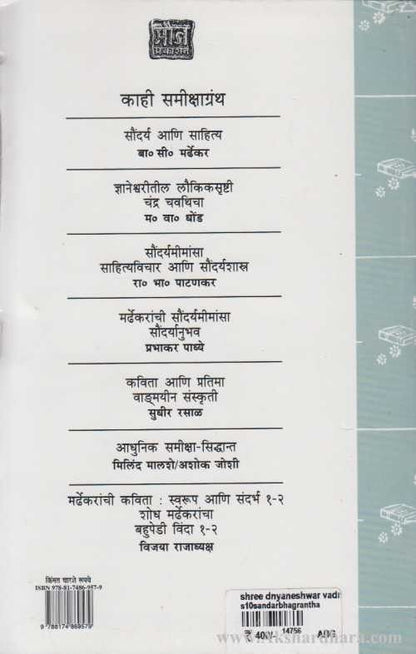 मौज
प्रकाशन
काही समीक्षाग्रंथ
सौंदर्य आणि साहित्य
बा० सी० मर्ढेकर
ज्ञानेश्वरीतील लौकिकसृष्टी
चंद्र चवथिचा
म० वा० धोंड
सौंदर्यमीमांसा
साहित्यविचार आणि सौंदर्यशास्त्र
रा० भा० पाटणकर
मर्ढेकरांची सौंदर्यमीमांसा
सौंदर्यानुभव
प्रभाकर पाध्ये
कविता आणि प्रतिमा
वाङ्मयीन संस्कृती
सुधीर रसाळ
आधुनिक समीक्षा-सिद्धान्त
मिलिंद मालशे/अशोक जोशी
मर्ढेकरांची कविता : स्वरूप आणि संदर्भ १-२
शोध मर्ढेकरांचा
बहुपेडी विंदा १-२
विजया राजाध्यक्ष
किंमत चारशे रुपये
ISBN 978-81-7486-957-9
9 788174 869579
shree dnyaneshwar vadn
s10sandarbhagrantha
रु 400/- 14756 ABG
www.akshardhara.com